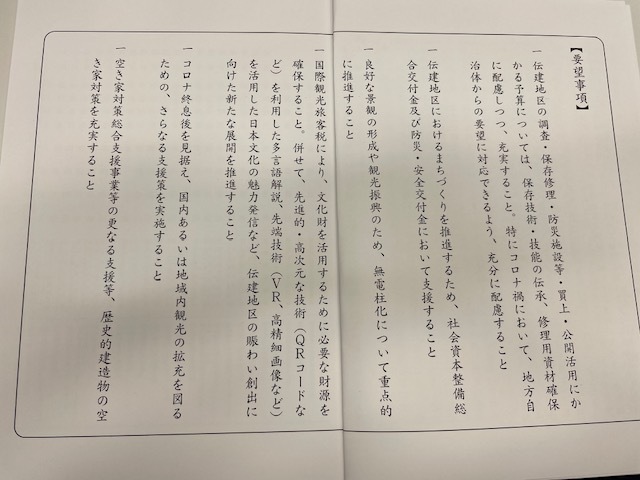 【要望事項】
一 伝建地区の調査・保存修理・防災施設等・買上・公開活用にか
かる予算については、保存技術・技能の伝承、修理用資材確保
に配慮しつつ、充実すること。特にコロナ禍において、地方自
治体からの要望に対応できるよう、充分に配慮すること
一 伝建地区におけるまちづくりを推進するため、社会資本整備総
合交付金及び防災・安全交付金において支援すること
一 良好な景観の形成や観光振興のため、無電柱化について重点的
に推進すること
一 国際観光旅客税により、文化財を活用するために必要な財源を
確保すること。併せて、先進的・高次元な技術（QRコードな
ど）を利用した多言語解説、先端技術（VR、高精細画像など）
を活用した日本文化の魅力発信など、伝建地区の賑わい創出に
向けた新たな展開を推進すること
一 コロナ終息後を見据え、国内あるいは地域内観光の拡充を図る
ための、さらなる支援策を実施すること
一 空き家対策総合支援事業等の更なる支援等、歴史的建造物の空
き家対策を充実すること